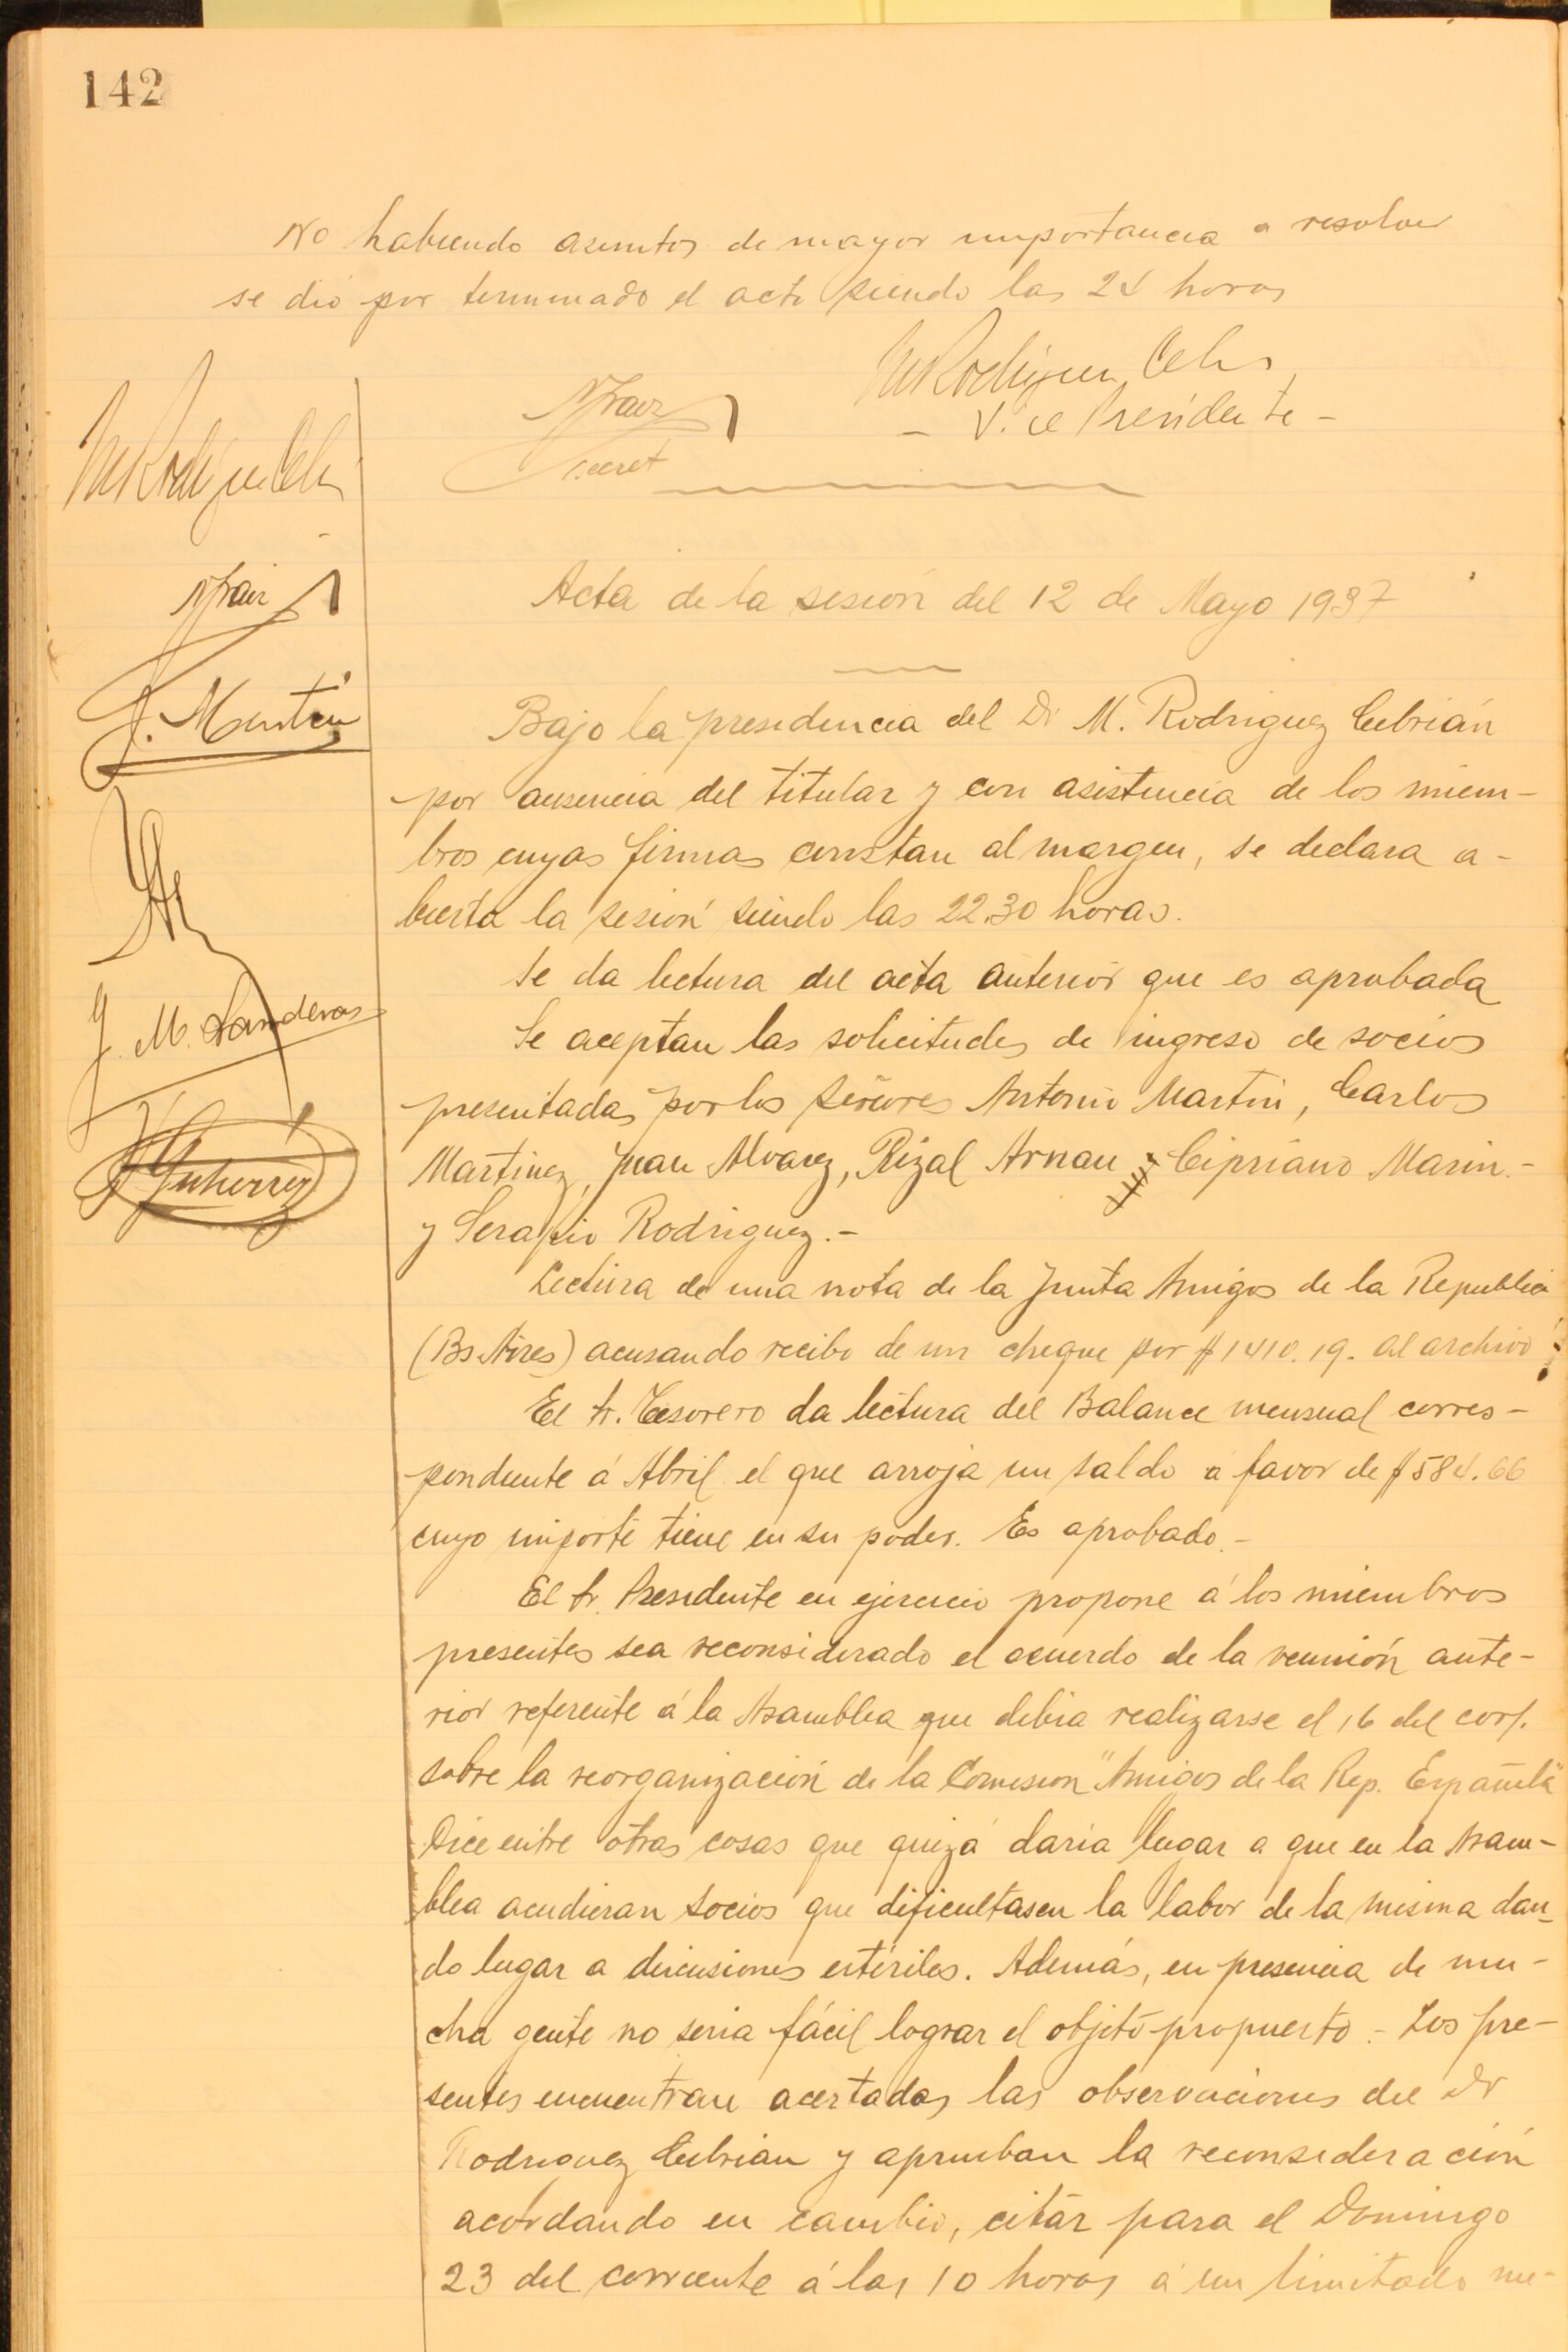 142
No habiendo asuntos de mayor importancia a resolver
se dió por terminado el acto siendo las 24 horas
Vice Presidente -
Secret
Acta de la sesión del 12 de Mayo 1937
Bajo la presidencia del Dr M. Rodriguez Cebrián
por ausencia del titular y con asistencia de los miem-
bros cuyas firmas constan al margen, se declara a-
bierta la sesión siendo las 22.30 horas.
Se da lectura del acta anterior que es aprobada
Se aceptan las solicitudes de ingreso de socios
presentadas por los señores Antonio Martin, Carlos
Martinez, Juan Alvarez, Rizal Arnau y Cipriano Marin.-
y Serafin Rodriguez.-
Lectura de una nota de la Junta Amigos de la Republica
(Bs Aires) acusando recibo de un cheque por $ 1410.19. al archivo
El Sr. Tesorero da lectura del Balance mensual corres-
pondiente á Abril el que arroja un saldo a favor de $ 584.66
cuyo importe tiene en su poder. Es aprobado.-
El Sr. Presidente en ejercicio propone á los miembros
presentes sea reconsiderado el acuerdo de la reunión ante-
rior referente á la Asamblea que debia realizarse el 16 del cort.
sobre la reorganización de la Comision "Amigos de la Rep. Española"
Dice entre otras cosas que quizá daria lugar a que en la Asam-
blea acudieran socios que dificultasen la labor de la misma dan-
do lugar a discusiones estériles. Además, en presencia de mu-
cha gente no seria fácil lograr el objeto propuesto.- Los pre-
sentes encuentran acertadas las observaciones del Dr
Rodriguez Cebrian y aprueban la reconsideración
acordando en cambio, citar para el Domingo
23 del corriente á las 10 horas á un limitado nu-
J. Martin
J. M. Landeras
Gutierrez